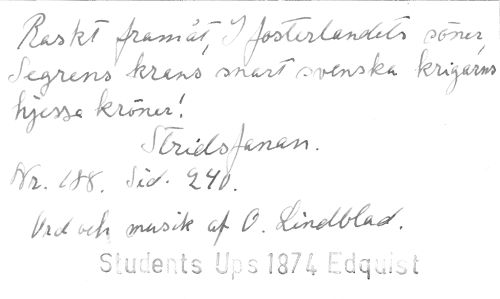 Raskt framåt, I fosterlandets söner
Segrens krans snart svenska krigarns
hjessa kröner!
Stridsfanan.
Nr. 188. Sid. 240.
Ord och musik af O. Lindblad.
Students Ups 1874 Edquist